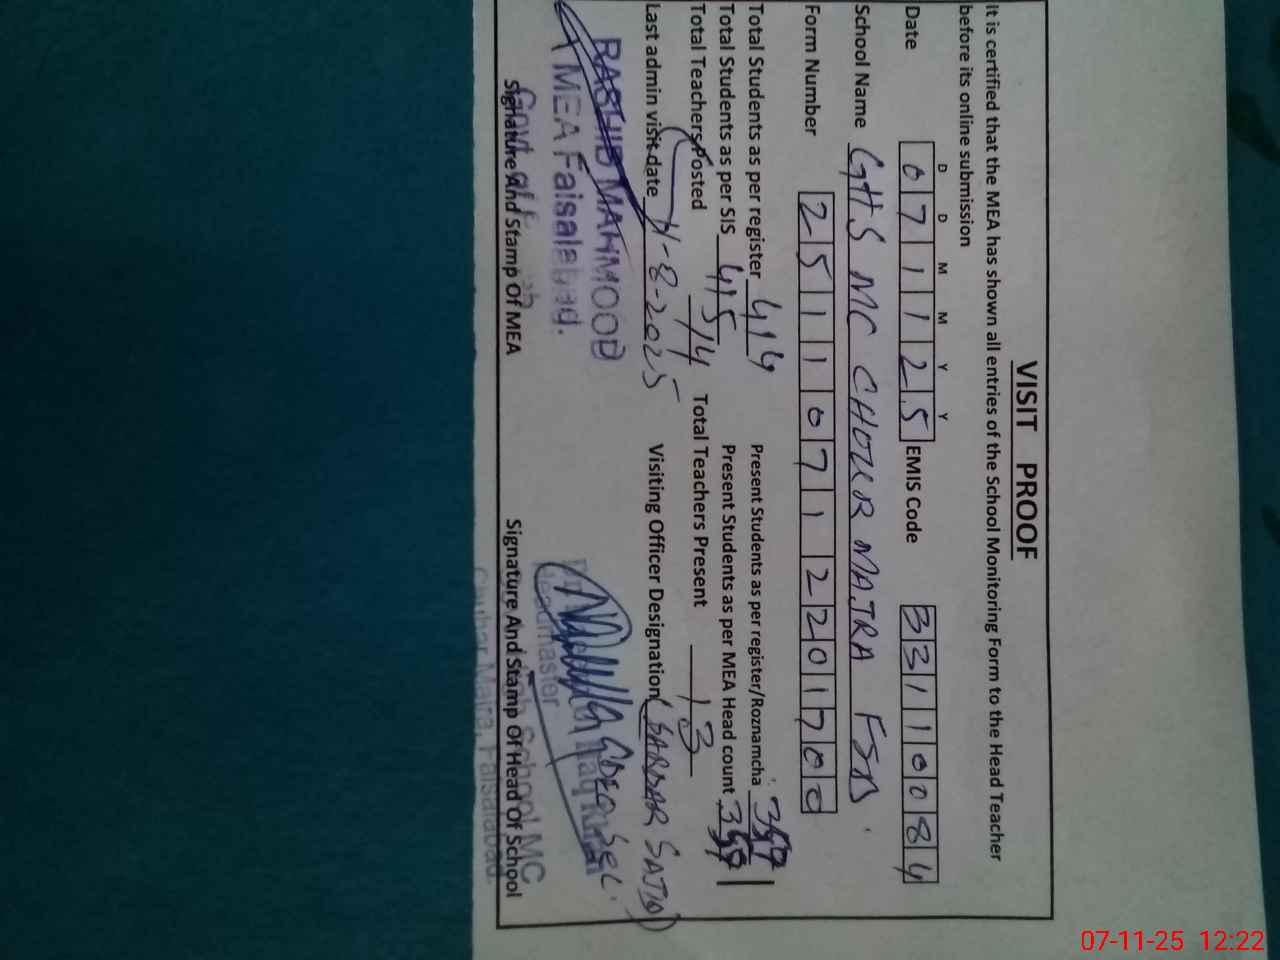 VISIT PROOF
It is certified that the MEA has shown all entries of the School Monitoring Form to the Head Teacher
before its online submission
D D M M Y Y
Date 07 11 25 EMIS Code 33110084
School Name GHS MC CHOUR MAJRA FSD.
Form Number 25110712201700
Total Students as per register 414 Present Students as per register/Roznamcha
Total Students as per SIS 415 Present Students as per MEA Head count
Total Teachers Posted 14 Total Teachers Present 13
Last admin visit date -8-2025 Visiting Officer Designation (SARDAR SAJID)
RASHID MAHMOOD
MEA Faisalabad.
Signature And Stamp Of MEA Signature And Stamp Of Head Of School
Headmaster
School MC
Majra, Faisalabad.
07-11-25 12:22